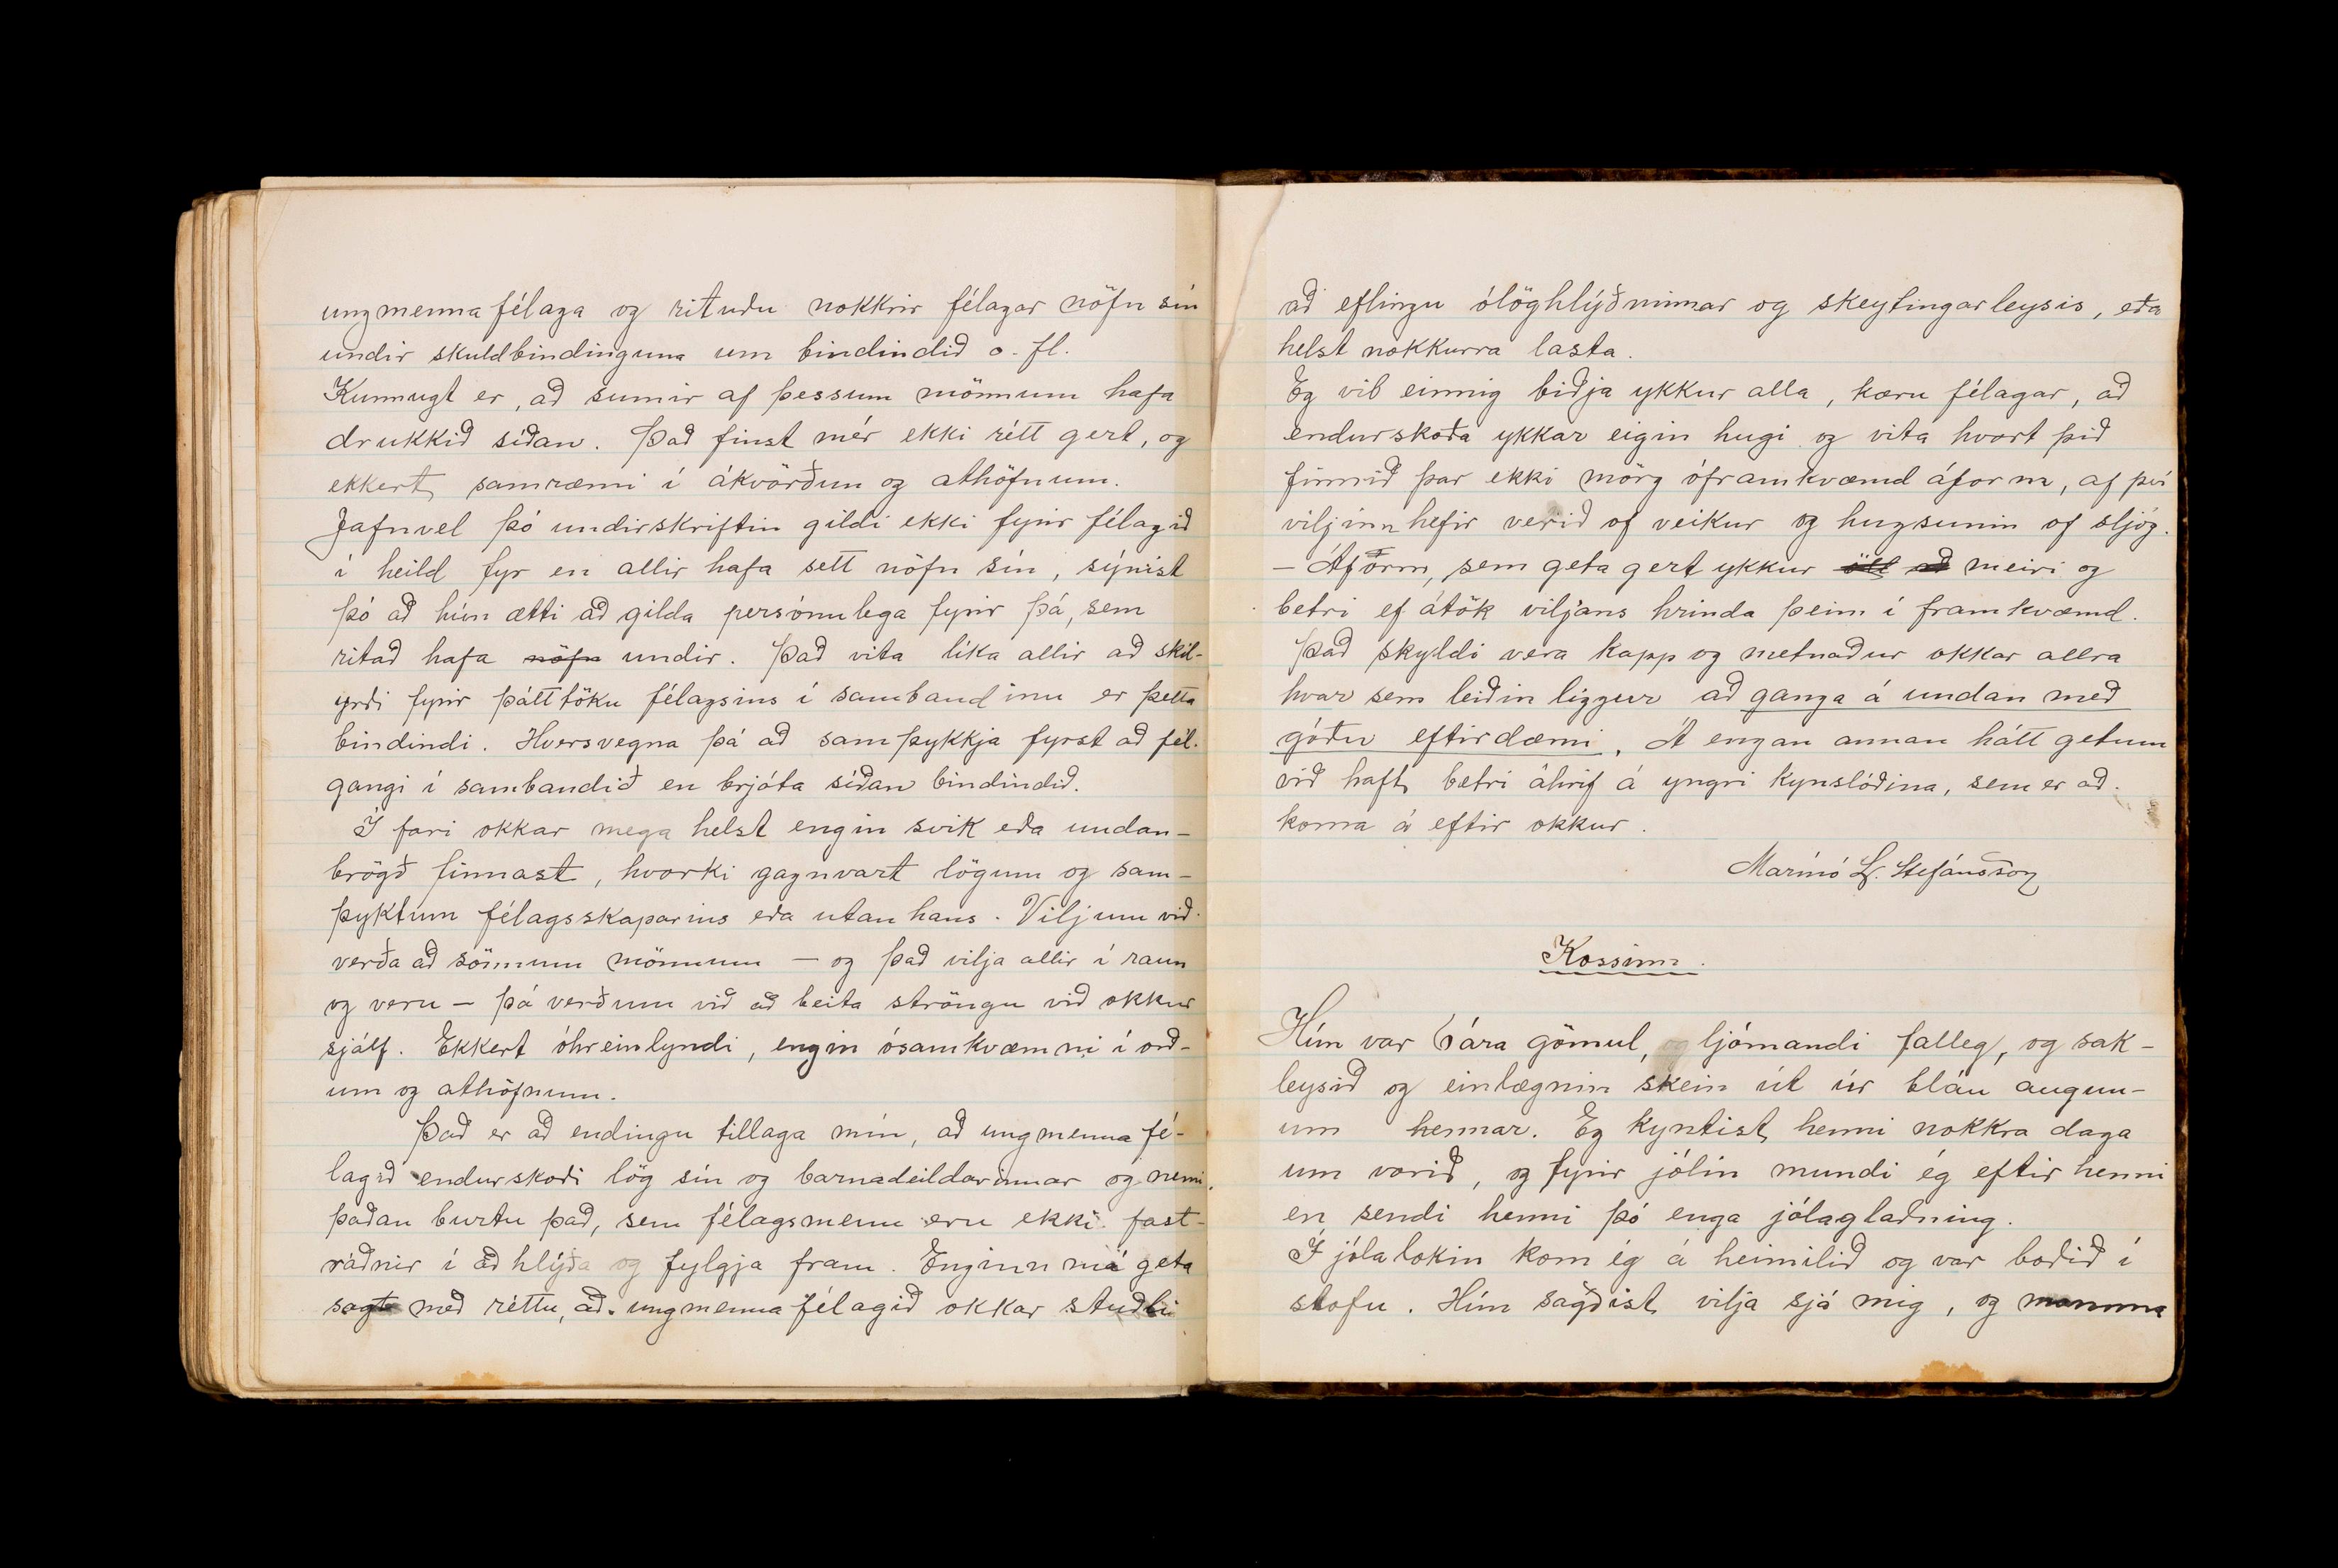 ungmennafélaga og rituðu nokkrir félagar nöfn sín
undir skuldbindinguna um bindindið o. fl.
Kunnugt er, að sumir af þessum mönnum hafa
drukkið síðan. Það finst mér ekki rétt gert, og
ekkert samræmi í ákvörðun og athöfnum.
Jafnvel þó undirskriftin gildi ekki fyrir félagið
í heild fyr en allir hafa sett nöfn sín, sýnist
þó að hún ætti að gilda persónulega fyrir þá, sem
ritað hafa nöfn undir. Það vita líka allir að skil-
yrði fyrir þátttöku félagsins í sambandinu er þetta
bindindi. Hversvegna þá að samþykkja fyrst að fél.
gangi í sambandið en brjóta síðan bindindið.
Í fari okkar mega helst engin svik eða undan-
brögð finnast, hvorki gagnvart lögum og sam-
þyktum félagsskaparins eða utan hans. Viljum við
verða að sönnum mönnum — og það vilja allir í raun
og veru — þá verðum við að beita ströngu við okkur
sjálf. Ekkert óhreinlyndi, engin ósamkvæmni í orð-
um og athöfnum.
Það er að endingu tillaga mín, að ungmennafé-
lagið endurskoði lög sín og barnadeildarinnar og nemi
þaðan burtu það, sem félagsmenn eru ekki fast-
ráðnir í að hlýða og fylgja fram. Enginn má geta
sagt með réttu, að ungmennafélagið okkar stuðli
að eflingu ólöghlýðninnar og skeytingarleysis, eða
helst nokkurra lasta.
Eg vil einnig biðja ykkur alla, kæru félagar, að
endurskoða ykkar eigin hugi og vita hvort þið
finnið þar ekki mörg óframkvæmd áform, af því
viljinn hefir verið of veikur og hugsunin of sljóg.
— Áform, sem geta gert ykkur öll að meiri og
betri ef átök viljans hrinda þeim í framkvæmd.
Það skyldi vera kapp og metnaður okkar allra
hvar sem leiðin liggur að ganga á undan með
góðu eftirdæmi. Á engan annan hátt getum
við haft betri áhrif á yngri kynslóðina, sem er að
koma á eftir okkur.
Marinó L. Stefánsson
Kossinn.
Hún var 6 ára gömul, og ljómandi falleg, og sak-
leysið og einlægnin skein út úr bláu augun-
um hennar. Eg kyntist henni nokkra daga
um vorið, og fyrir jólin mundi ég eftir henni
en sendi henni þó enga jólaglaðning.
Í jólalokin kom ég á heimilið og var boðið í
stofu. Hún sagðist vilja sjá mig, og mamma